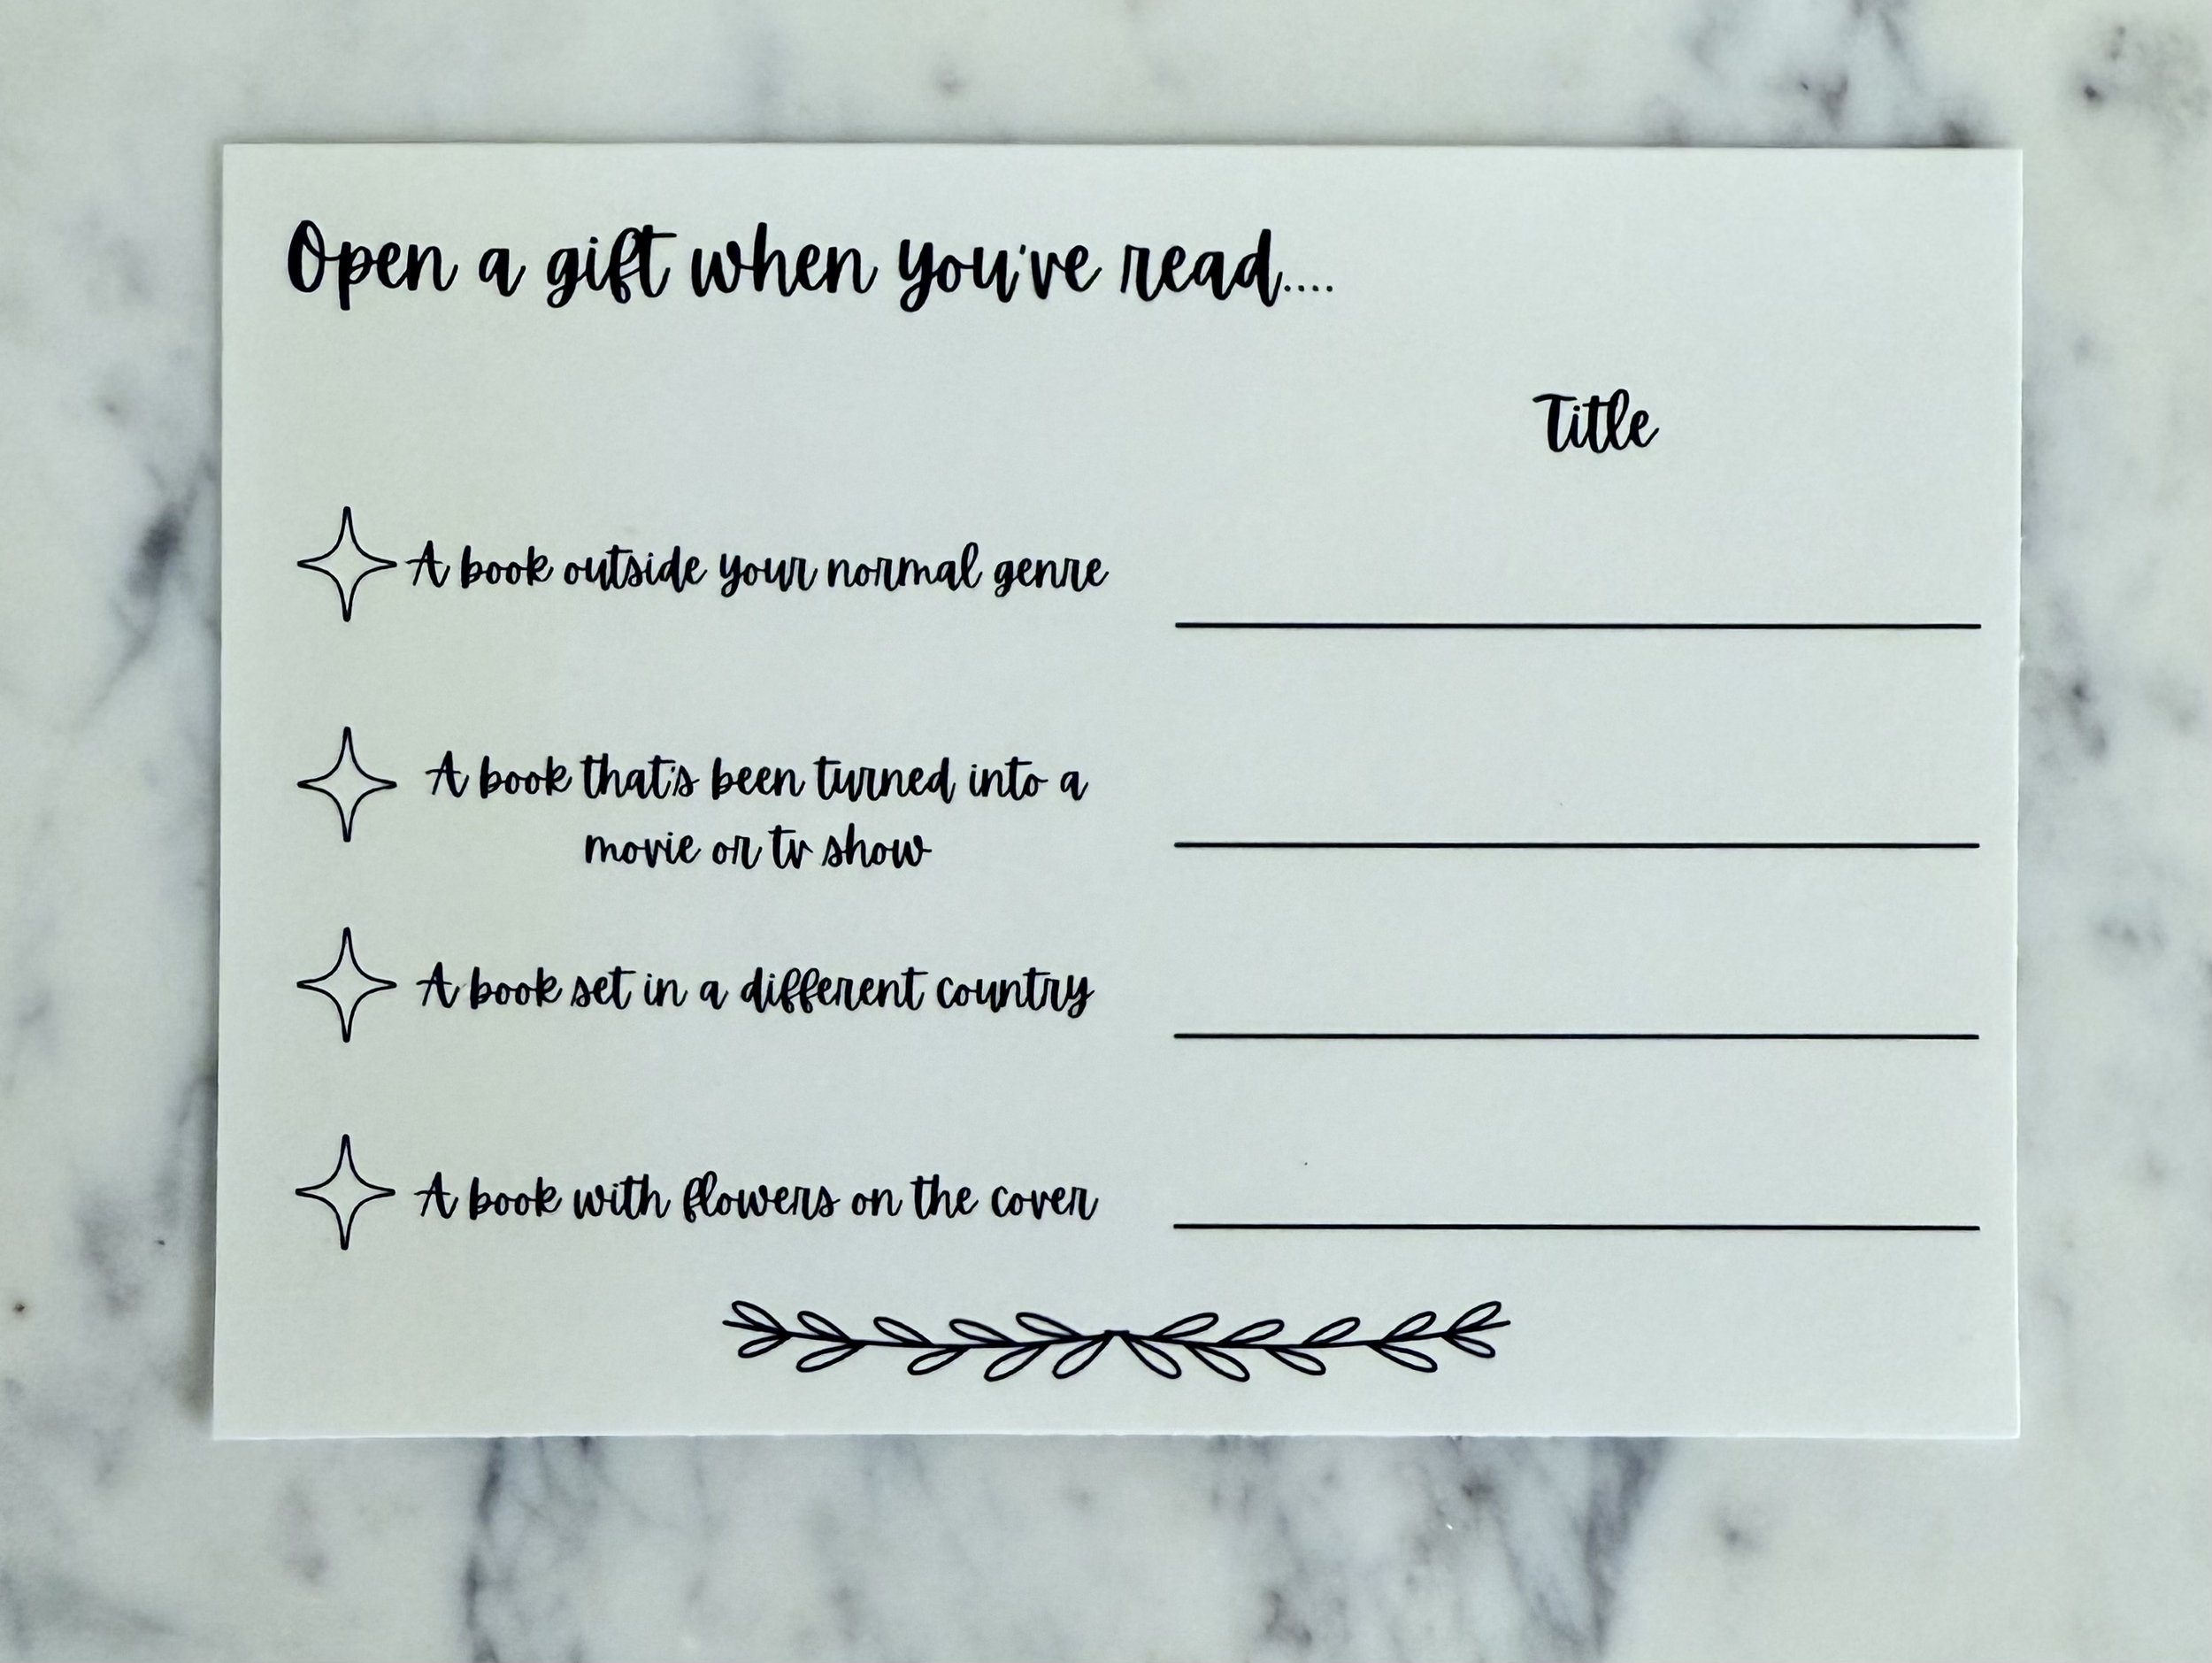 Open a gift when you've read....
Title
A book outside your normal genre
A book that's been turned into a
movie or tv show
A book set in a different country
A book with flowers on the cover